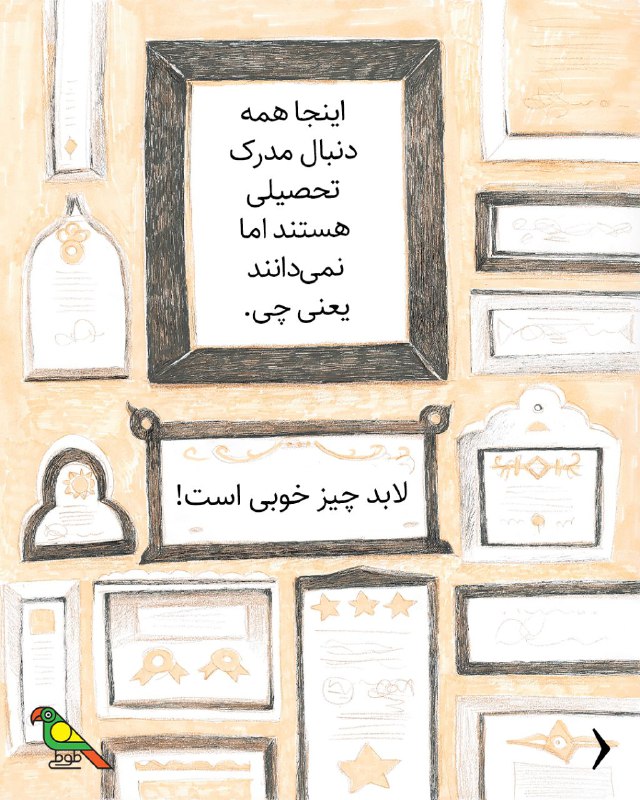 اینجا همه
دنبال مدرک
تحصیلی
هستند اما
نمی‌دانند
یعنی چی.
لابد چیز خوبی است!
طوطی